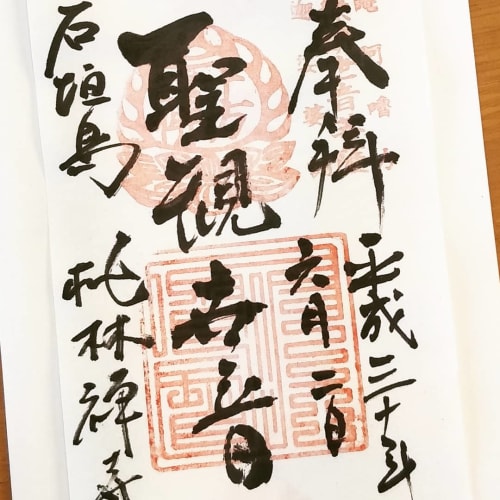 奉拝
平成三十年
六月二日
聖観世音
石垣島
桃林禅寺